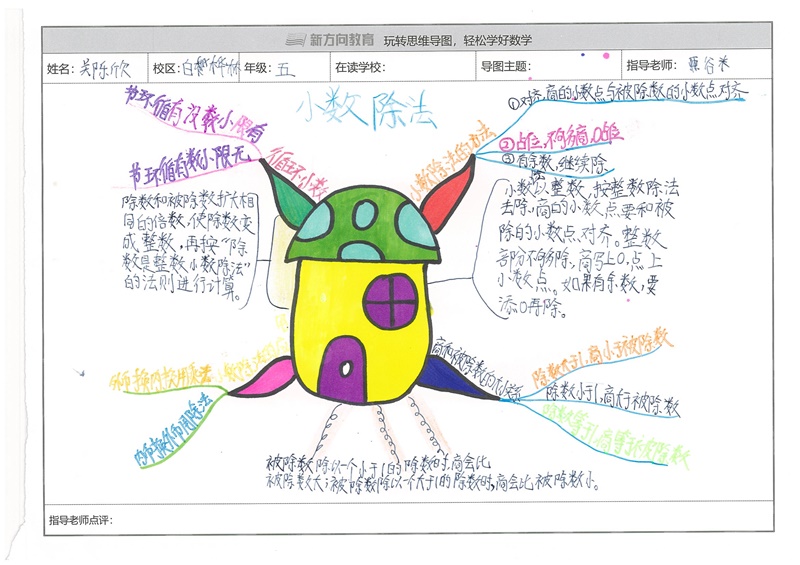 新方向教育 玩转思维导图，轻松学好数学
姓名：吴陈欣 校区：白 桦林 年级：五 在读学校： 导图主题： 指导老师：
小数除法
节环循有没数小限有
节环循有数小限无
循环小数
小数除法的方法
①对齐，商的小数点与被除数的小数点对齐
②占位，不够商，0占位
③有余数，继续除
除数和被除数扩大相
同的倍数，使除数变
成整数，再按“除
数是整数小数除法”
的法则进行计算。
小数除以整数，按整数除法
去除，商的小数点要和被
除的小数点对齐。整数
部分不够除，商写上0，点上
小数点。如果有余数，要
添0再除。
商和被除数的大小关系
除数大于1，商小于被除数
除数小于1，商大于被除数
除数等于1，商等于被除数
外币换人民币用乘法
人民币换外币用除法
被除数除以一个小于1的除数时，商会比
被除数大；被除数除以一个大于1的除数时，商会比被除数小。
指导老师点评：